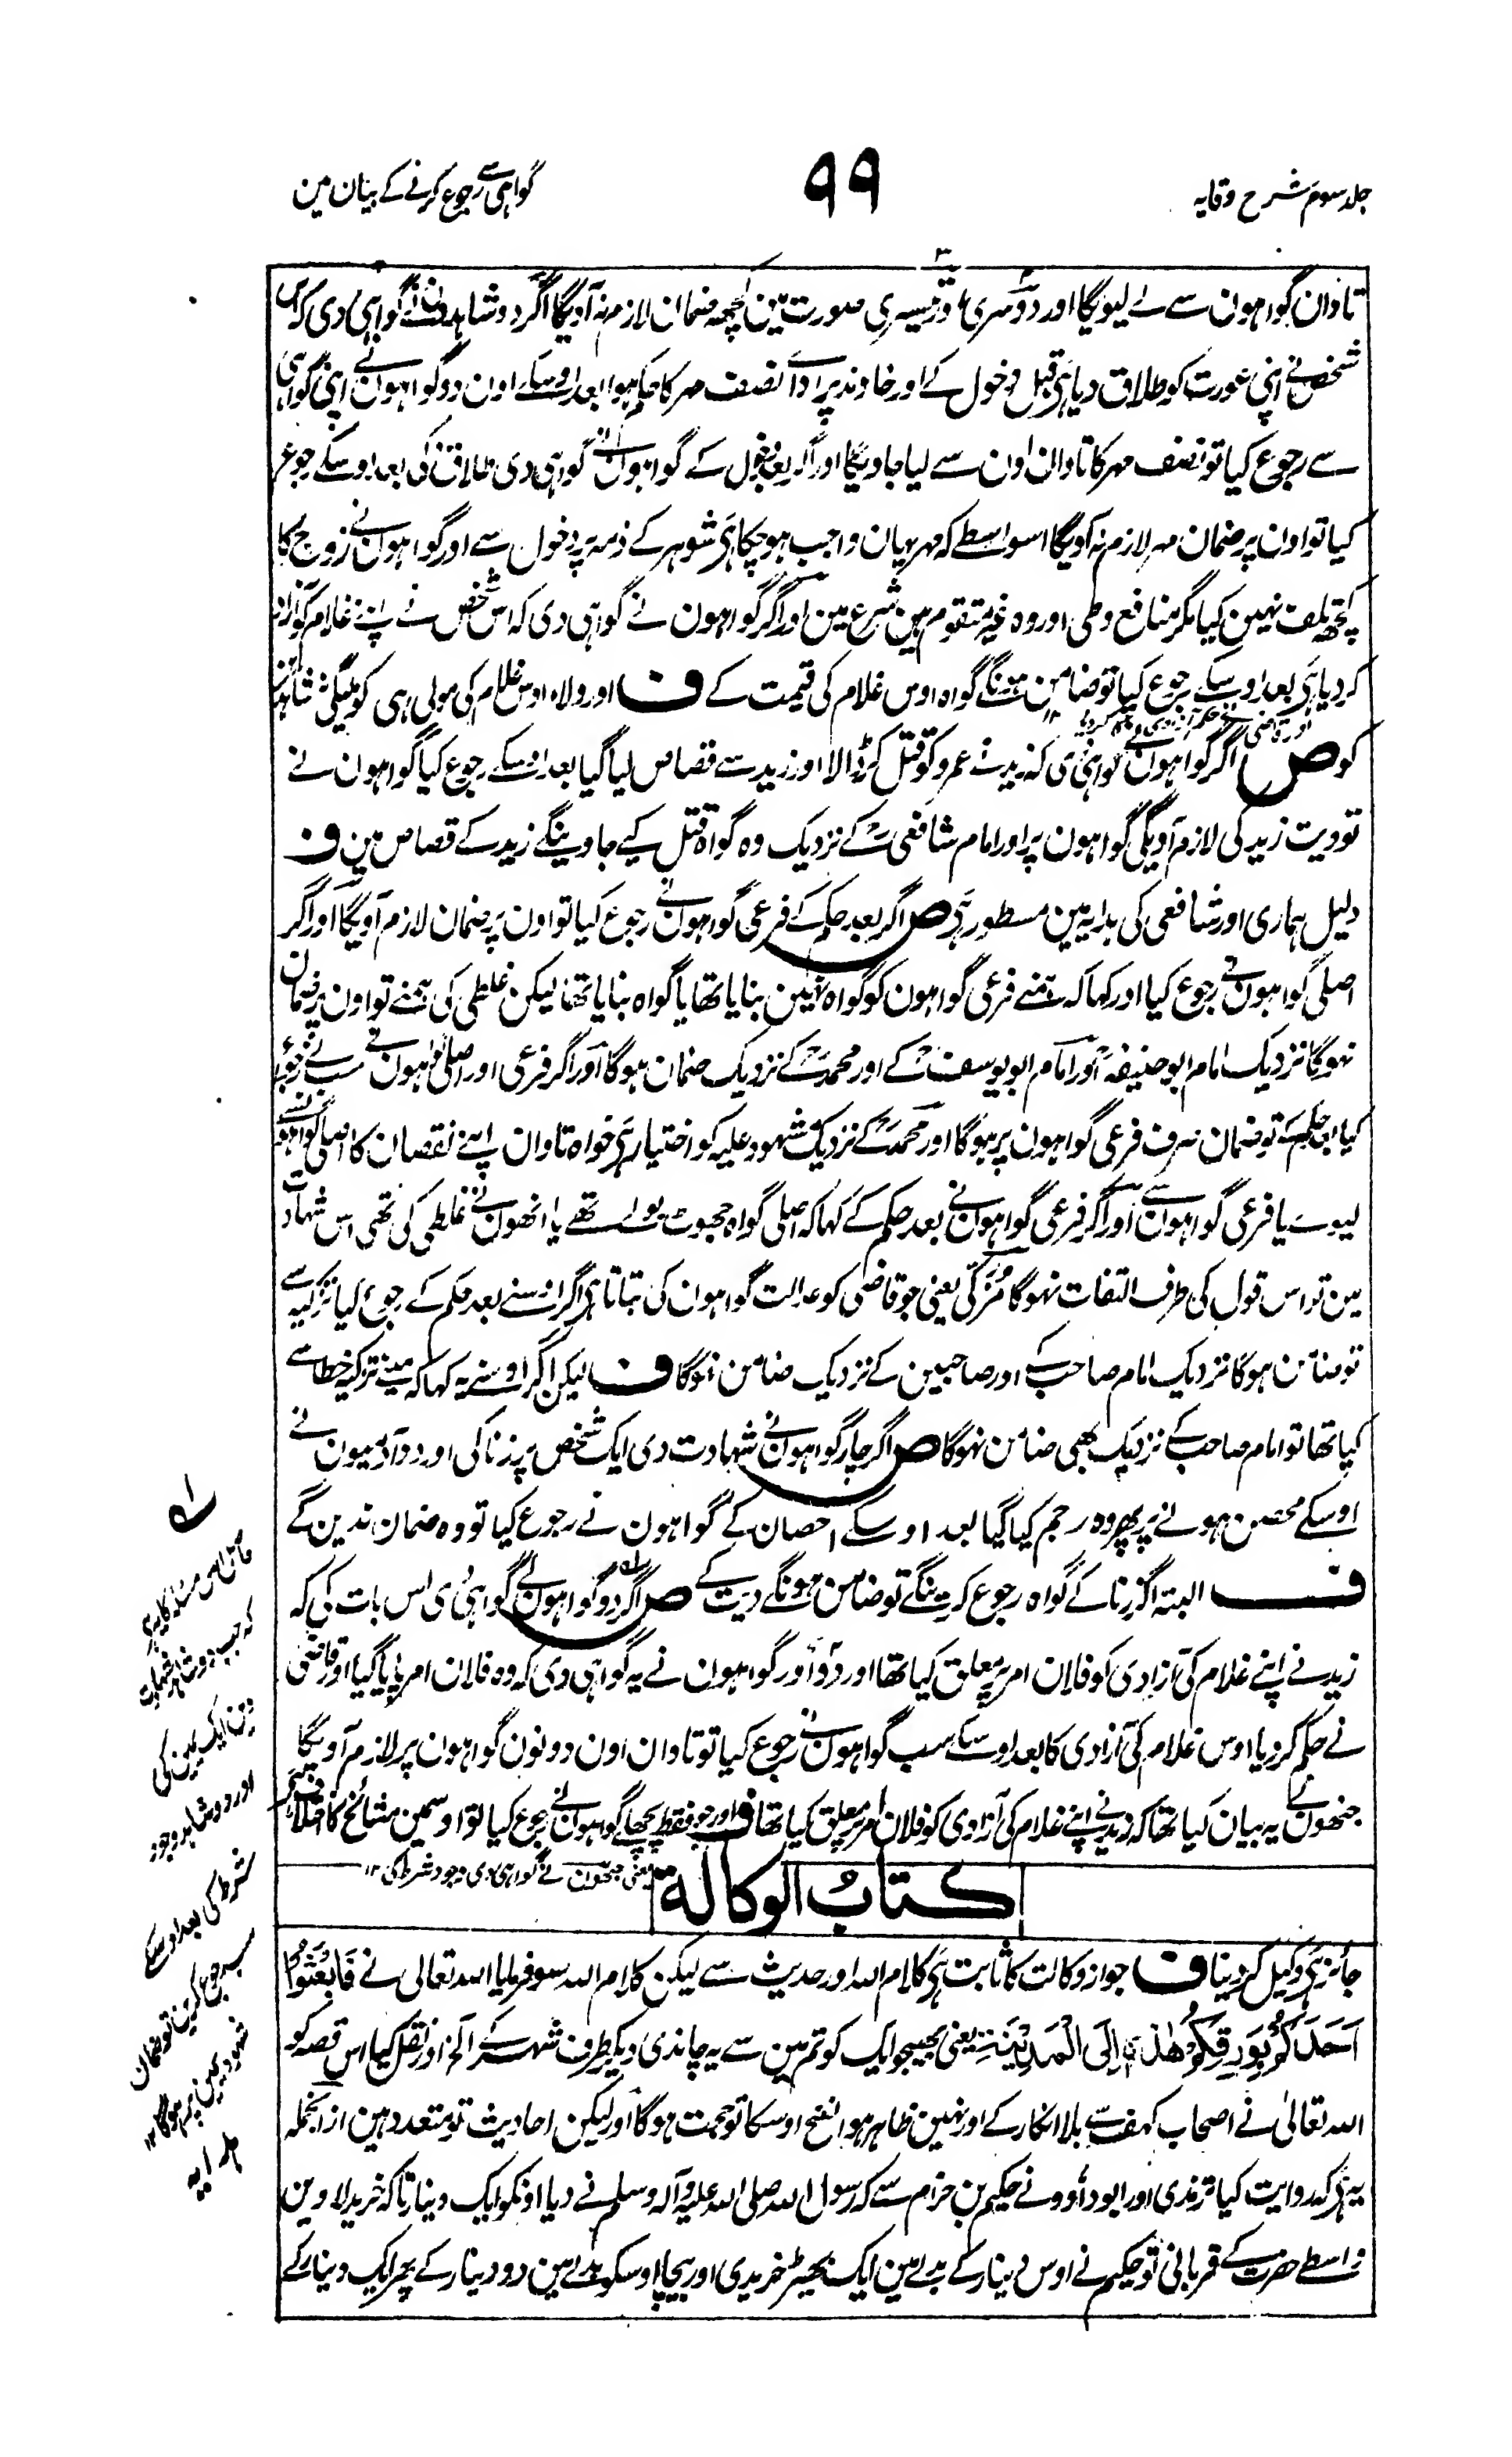 جلد سوم شرح وقایہ
۹۹
گواہی سے رجوع کرنے کے بیان مین
تاوان گواہون سے لے لیویگا اور دوسری اور تیسری صورت مین کچھ ضمان لازم نہ آویگا اگر دو شاہدون نے گواہی دی کہ اس
شخص نے اپنی عورت کو طلاق دیا ہی قبل دخول کے اور خاوند پر اداے نصف مہر کا حکم ہوا بعد اوسکے اون دو گواہون نے اپنی گواہی
سے رجوع کیا تو نصف مہر کا تاوان اون سے لیا جاویگا اور اگر بعد دخول کے گواہون نے گواہی دی طلاق کی بعد اوسکے رجوع
کیا تو اون پر ضمان مہر لازم نہ آویگا اسواسطے کہ مہر یہان واجب ہو چکا ہی شوہر کے ذمہ پر دخول سے اور گواہون نے زوج کا
کچھ تلف نہین کیا مگر منافع وطی اور وہ غیر متقوم ہین شرع مین اور اگر گواہون نے گواہی دی کہ اس شخص نے اپنے غلام کو آزاد
کر دیا ہی بعد اوسکے رجوع کیا تو ضامن ہونگے گواہ اوس غلام کی قیمت کے ف اور ولاء اوس غلام کی مولی ہی کو ملیگی نہ شاہدون
کو ص اگر گواہون نے گواہی دی کہ زید نے عمرو کو قتل کر ڈالا اور زید سے قصاص لیا گیا بعد اوسکے رجوع کیا گواہون نے
تو دیت زید کی لازم آویگی گواہون پر اور امام شافعی رح کے نزدیک وہ گواہ قتل کیے جاوینگے زید کے قصاص مین ف
دلیل ہماری اور شافعی کی ہدایہ مین مسطور ہی ص اگر بعد حکم کے فرعی گواہون نے رجوع کیا تو اون پر ضمان لازم آویگا اور اگر
اصلی گواہون نے رجوع کیا اور کہا کہ ہمنے فرعی گواہون کو گواہ نہین بنایا تھا یا گواہ بنایا تھا لیکن غلطی کی ہمنے تو اون پر ضمان
نہوگا نزدیک امام ابو حنیفہ رح اور امام ابو یوسف رح کے اور محمد رح کے نزدیک ضمان ہوگا اور اگر فرعی اور اصلی گواہون نے سب نے رجوع
کیا بعد حکم کے تو ضمان صرف فرعی گواہون پر ہوگا اور محمد رح کے نزدیک مشہود علیہ کو اختیار ہی خواہ تاوان اپنے نقصان کا اصلی گواہون سے
لیوے یا فرعی گواہون سے اور اگر فرعی گواہون نے بعد حکم کے کہا کہ اصلی گواہ جھوٹ بولے تھے یا انھون نے غلطی کی تھی اس شہادت
مین تو اس قول کی طرف التفات نہوگا مزکی یعنی جو قاضی کو عدالت گواہون کی بتاتا ہی اگر اوسنے بعد حکم کے رجوع کیا تزکیہ سے
تو ضامن ہوگا نزدیک امام صاحب کے اور صاحبین کے نزدیک ضامن نہوگا ف لیکن اگر اوسنے یہ کہا کہ مینے تزکیہ خطا سے
کیا تھا تو امام صاحب کے نزدیک بھی ضامن نہوگا ص اگر چار گواہون نے شہادت دی ایک شخص پر زنا کی اور دو آدمیون نے
اوسکے محصن ہونے پر پھر وہ رجم کیا گیا بعد اوسکے احصان کے گواہون نے رجوع کیا تو وہ ضمان ندین گے
ف البتہ اگر زنا کے گواہ رجوع کرینگے تو ضامن ہونگے دیت کے ص اگر دو گواہون نے گواہی دی اس بات کی کہ
زید نے اپنے غلام کی آزادی کو فلان امر پر معلق کیا تھا اور دو اور گواہون نے یہ گواہی دی کہ وہ فلان امر پایا گیا اور قاضی
نے حکم کر دیا اوس غلام کی آزادی کا بعد اوسکے سب گواہون نے رجوع کیا تو تاوان اون دونون گواہون پر لازم آویگا
جنھون نے یہ بیان کیا تھا کہ زید نے اپنے غلام کی آزادی کو فلان امر پر معلق کیا تھا ف اور جو فقط پچھلے گواہون نے رجوع کیا تو اوسمین مشائخ کا اختلاف ہی
یعنی جنھون نے گواہی دی وجود شرط کی ۱۲
کتاب الوکالة
جائز ہی وکیل کر دینا ف جواز وکالت کا ثابت ہی کلام اللہ اور حدیث سے لیکن کلام اللہ سو فرمایا اللہ تعالی نے فَابْعَثُوْا
اَحَدَكُمْ بِوَرِقِكُمْ هٰذِهٖ اِلَى الْمَدِيْنَةِ یعنی بھیجو ایک کو تم مین سے یہ چاندی دیکر طرف شہر کے الخ اور نقل کیا اس قصہ کو
اللہ تعالیٰ نے اصحاب کہف سے بلا انکار کے اور نہین ظاہر ہوا نسخ اوسکا تو حجت ہوگا اور لیکن احادیث تو متعدد ہین ازانجملہ
یہ ہی کہ روایت کیا ترمذی اور ابو داؤد نے حکیم بن حزام سے کہ رسول اللہ صلی اللہ علیہ وآلہ وسلم نے دیا اونکو ایک دینار تاکہ خرید لاوین
واسطے حضرت کے قربانی تو حکیم نے اوس دینار کے بدلے مین ایک بھیڑ خریدی اور بیچا اوسکو بدلے مین دو دینار کے پھر ایک دینار کے
کہ جب دو شاہد شہادت
دین ایک یمین کی
اور دو شاہد وجود
شرط کی بعد اوسکے
سب رجوع کرین تو ضمان
شہود یمین پر ہوگا ۱۲
ہدایہ